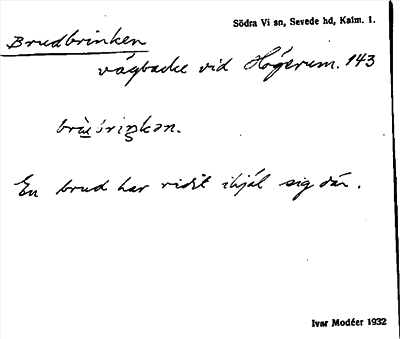 Södra Vi sn, Sevede hd, Kalm. l.
Brudbrinken
vägbacke vid Högerum. 143
En brud har ridit ihjäl sig där.
Ivar Modéer 1932